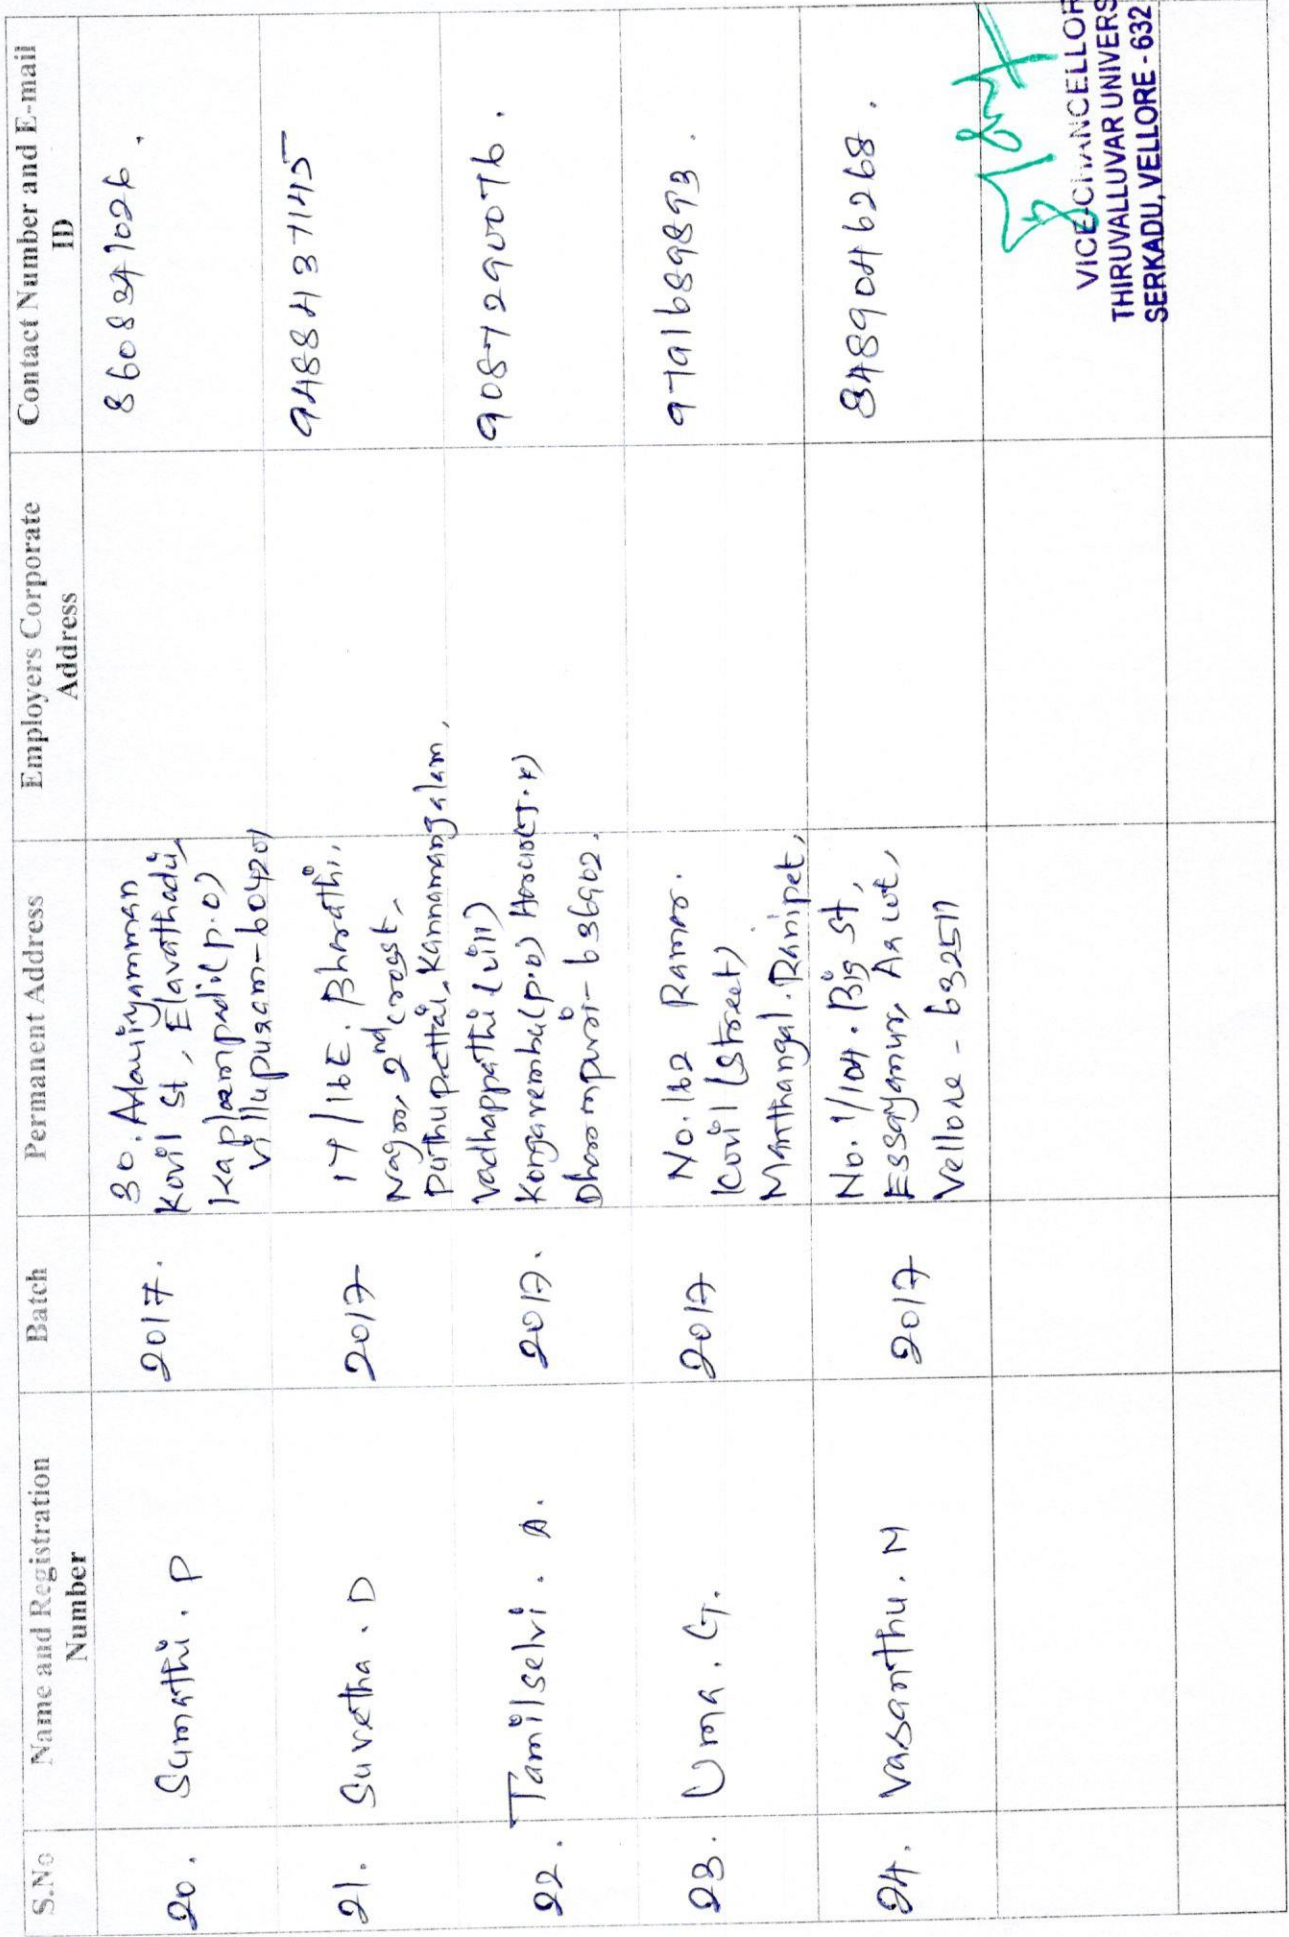 S.No Name and Registration Number Batch Permanent Address Employers Corporate Address Contact Number and E-mail ID
20. Sumathi. P 2017. 30. Mariyamman
Kovil St, Elavathadi,
(p.o)
Villupuram- 8608347026.
21. Suvetha. D 2017 17/16E. Bharathi,
Nagar, 2nd cross st,
Puthupettai, Kannamangalam, 9488437145
22. Tamilselvi. A. 2017. Vadhappatti (vill)
Kongarembu(p.o) (T.K)
Dharmapuri- 636902. 9087290076.
23. Uma. G. 2017 No. 162 Ramar.
Kovil (Street)
Manthangal. Ranipet, 9791689893.
24. Vasanthu. M 2017 No. 1/104. Big St,
Essayanur, Arcot,
Vellore - 632511 8489046268.
VICE-CHANCELLOR
THIRUVALLUVAR UNIVERS
SERKADU, VELLORE - 632